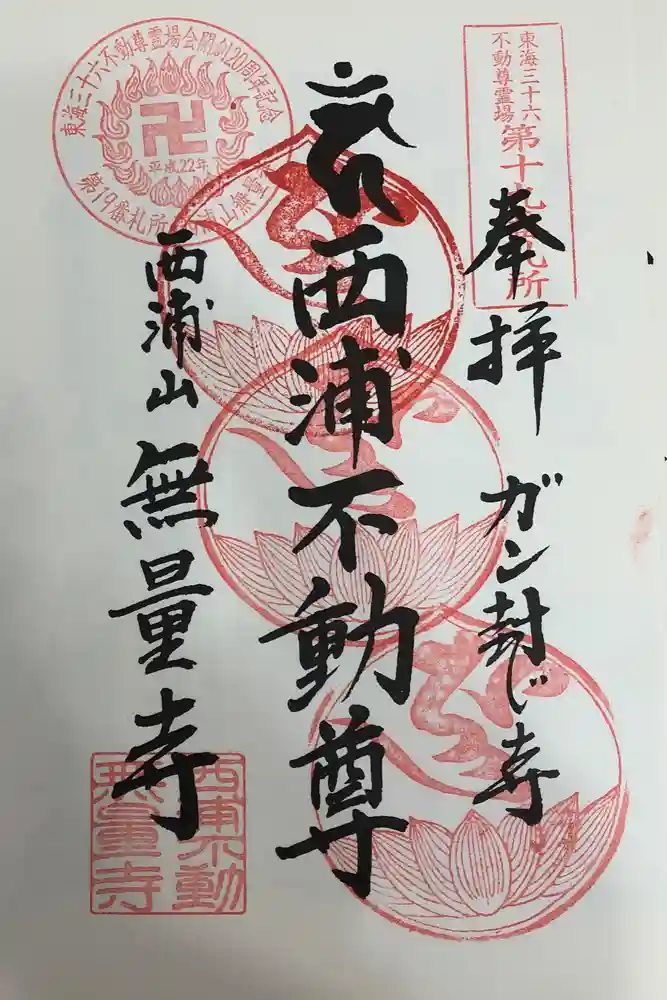 奉拝 ガン封じ寺
西浦不動尊
西浦山 無量寺
東海三十六
不動尊霊場
第十九番札所
東海三十六不動尊霊場会開創20周年記念
平成22年
第19番札所 西浦山無量寺
無量寺